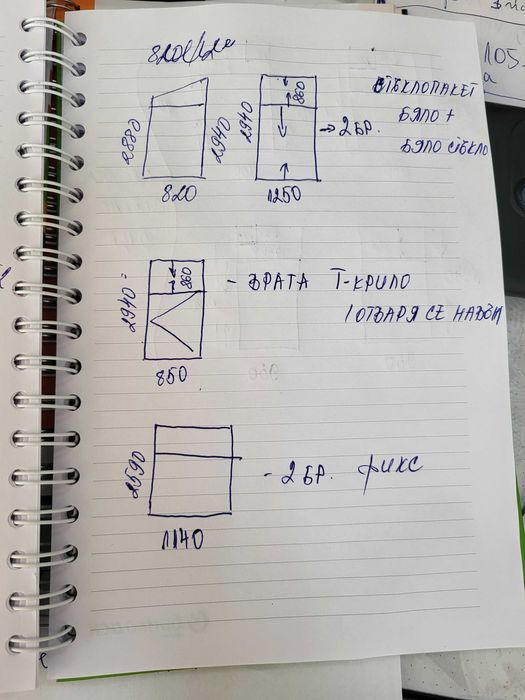 860
СТЪКЛОПАКЕТ
2880
2940
2940
→ 2 БР.
БЯЛО +
БЯЛО СТЪКЛО
820
1250
2940
860
- ВРАТА Т-КРИЛО
/ОТВАРЯ СЕ НАВЪН
850
2590
- 2 БР. ФИКС
1140
105